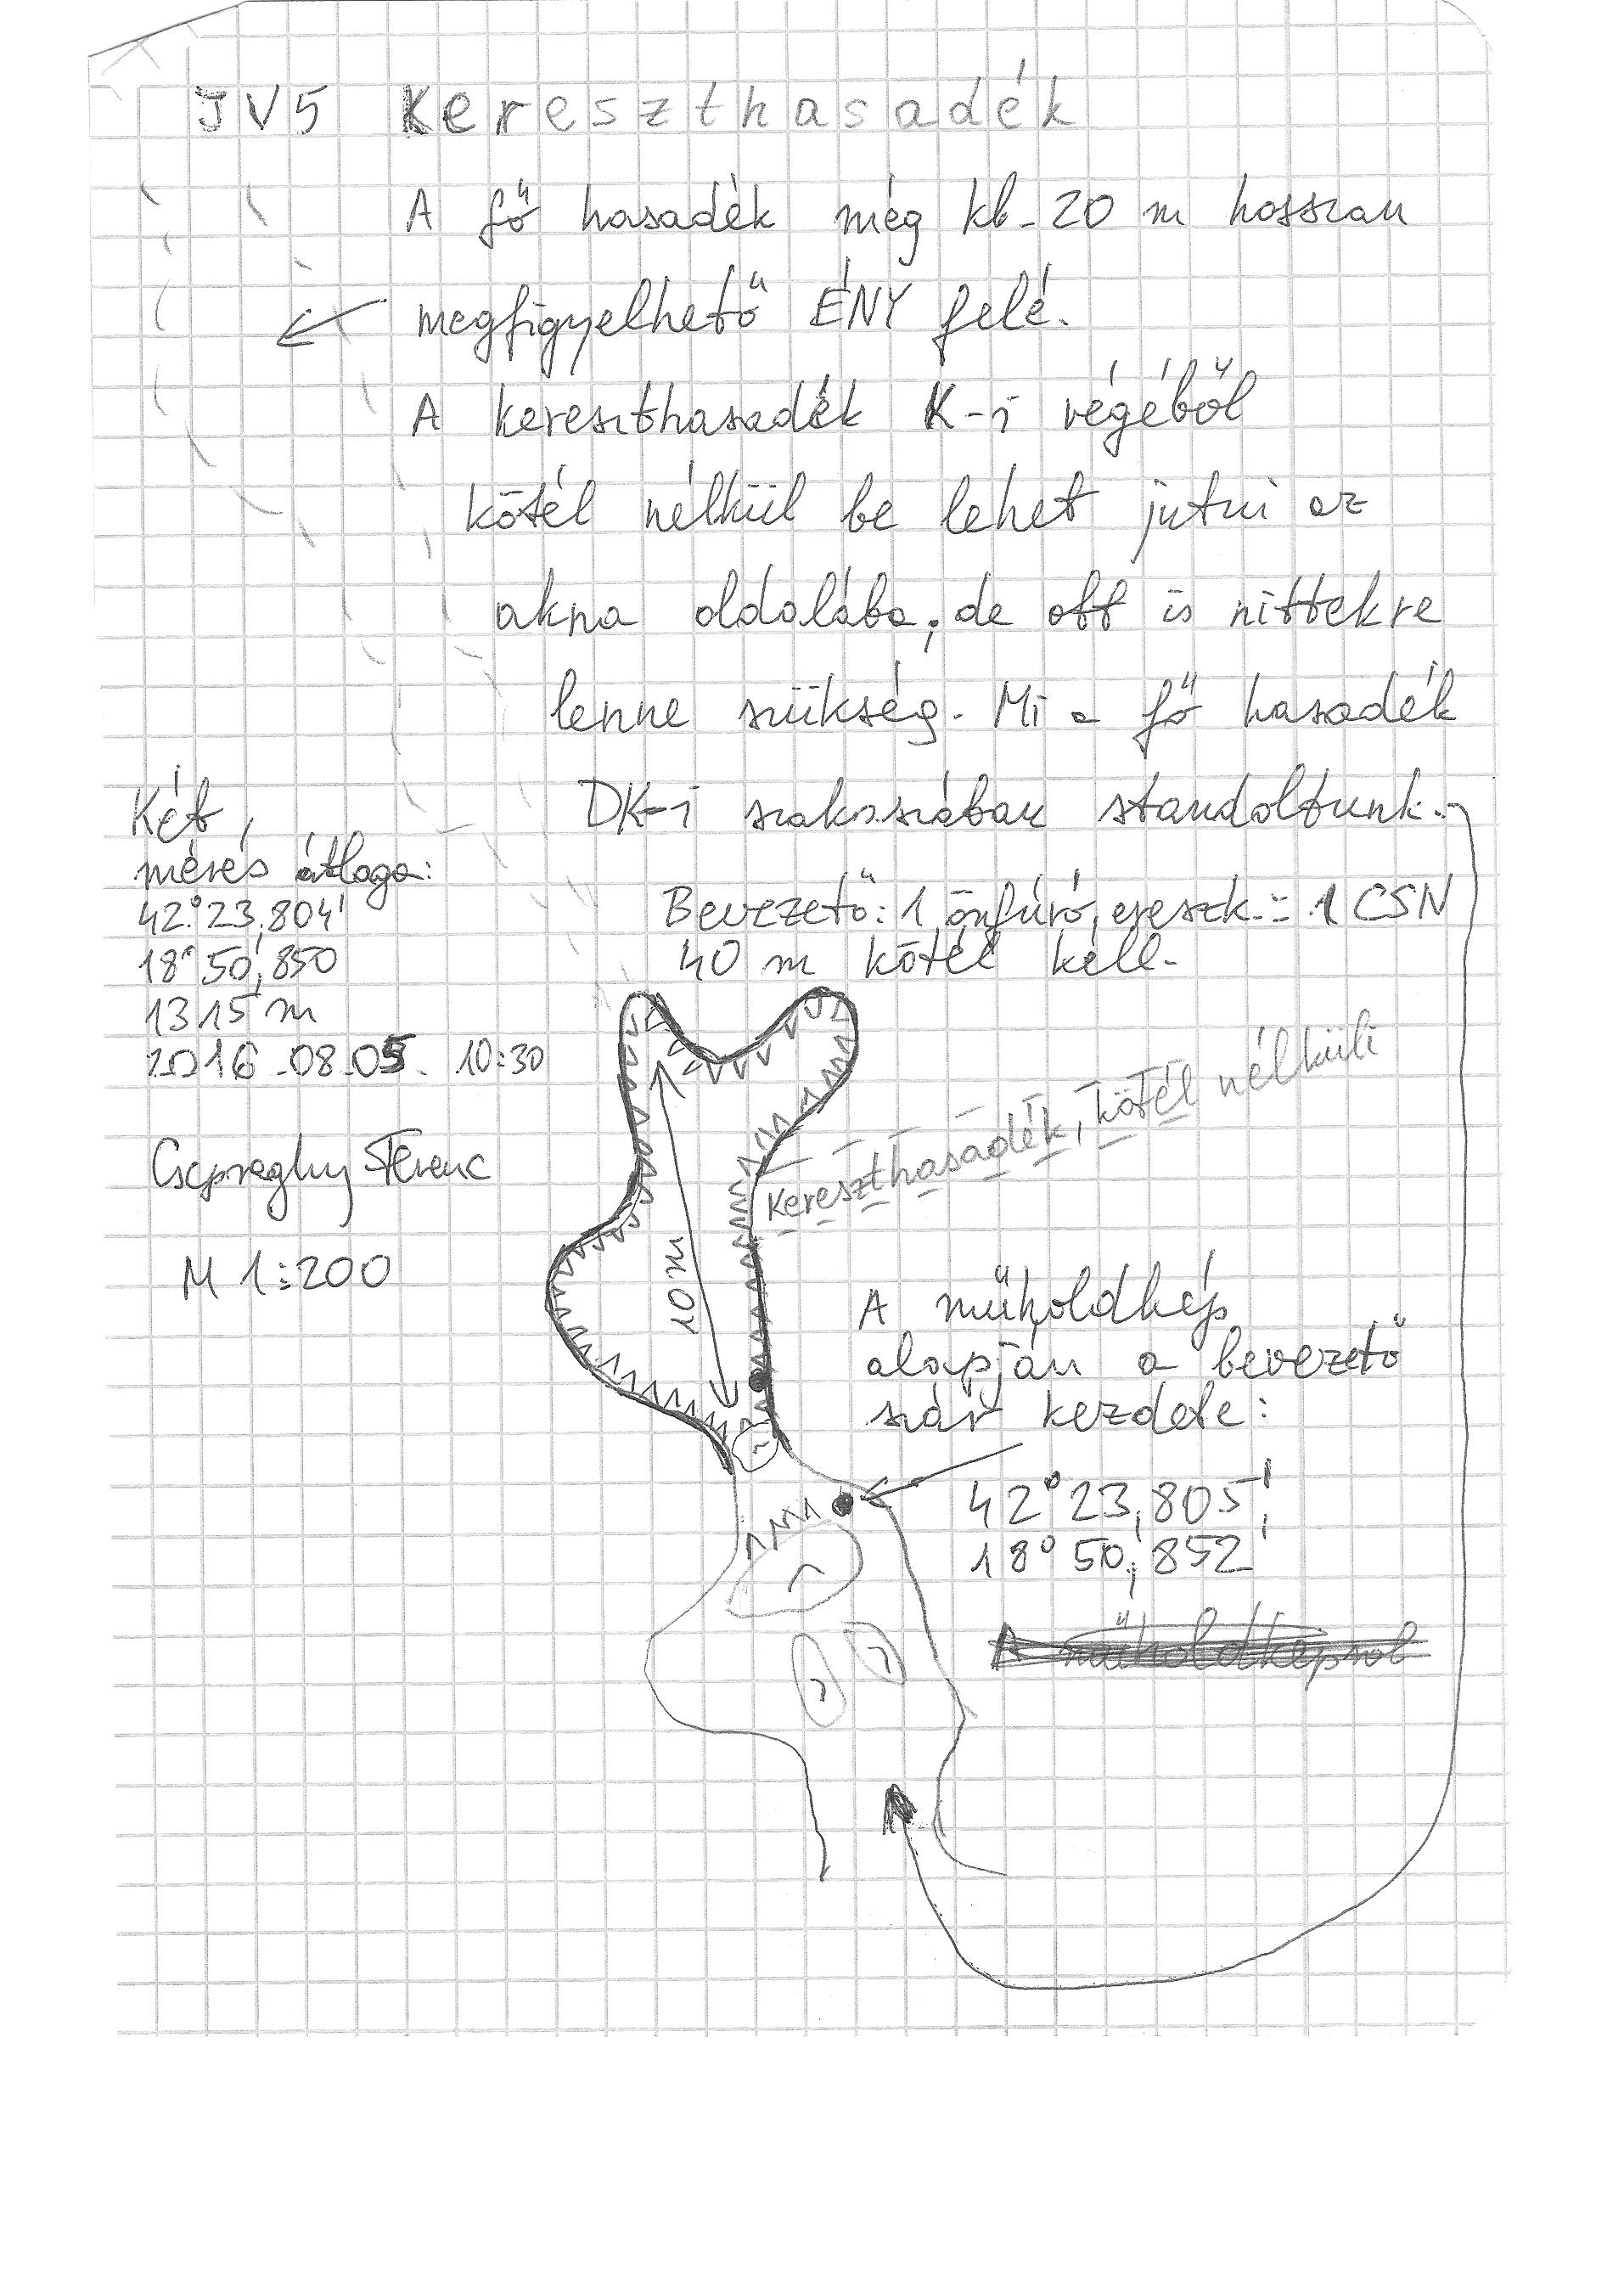 JV5 Kereszthasadék
A fő hasadék még kb. 20 m hosszan
megfigyelhető ÉNY felé.
A kereszthasadék K-i végéből
kötél nélkül be lehet jutni az
akna oldalába, de ott is nittekre
lenne szükség. Mi a fő hasadék
DK-i szakaszában standoltunk.
Bevezető: 1 önfúró, ereszk.: 1 CSN
40 m kötél kell.
Két
mérés átlaga:
42°23,804'
18°50,850
1315 m
2016.08.05. 10:30
Csepreghy Ferenc
M 1:200
10 m
Kereszthasadék, kötél nélküli
A műholdkép
alapján a bevezető
szár kezdete:
42°23,805',
18°50,852'
A műholdképről